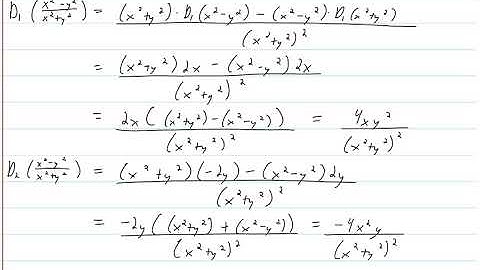 D₁ ((x²-y²)/(x²+y²)) = ((x²+y²)·D₁(x²-y²) - (x²-y²)·D₁(x²+y²))/(x²+y²)²
= ((x²+y²)2x - (x²-y²)2x)/(x²+y²)²
= 2x((x²+y²)-(x²-y²))/(x²+y²)² = 4xy²/(x²+y²)²
D₂ ((x²-y²)/(x²+y²)) = ((x²+y²)(-2y) - (x²-y²)2y)/(x²+y²)²
= -2y((x²+y²)+(x²-y²))/(x²+y²)² = -4x²y/(x²+y²)²